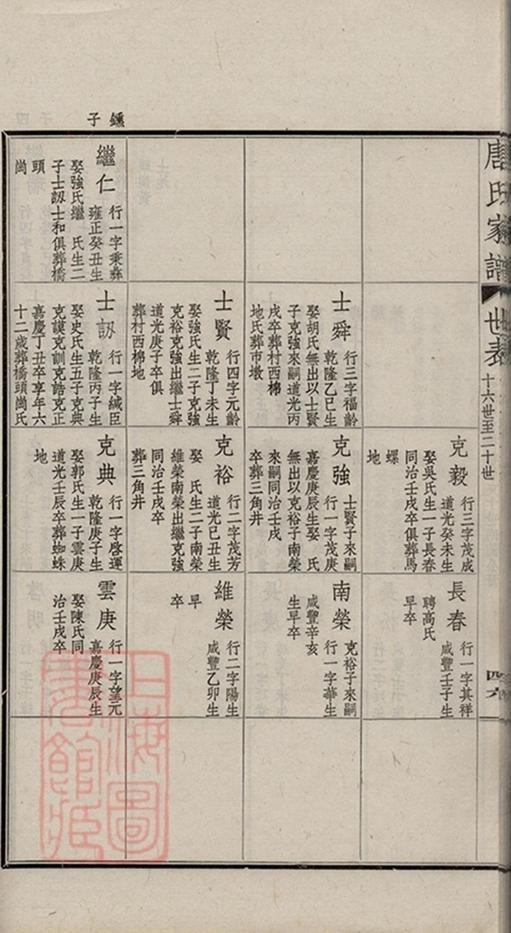 唐氏家譜
世表
十六世至二十世
四六
克毅
行三字茂成
道光癸未生
娶吳氏生一子長春
同治壬戌卒俱葬馬
蝶
地
長春
行一字其祥
咸豐壬子生
聘高氏
早卒
士舜
行三字福齡
乾隆乙巳生
娶胡氏無出以士賢
子克強來嗣道光丙
戌卒葬村西棉
地氏葬市墩
克強
士賢子來嗣
行一字茂庚
嘉慶庚辰生娶 氏
無出以克裕子南榮
來嗣同治壬戌
卒葬三角井
南榮
克裕子來嗣
行一字華生
咸豐辛亥
生早卒
士賢
行四字元齡
乾隆丁未生
娶強氏生二子克強
克裕克強出繼士舜
道光庚子卒俱
葬村西棉地
克裕
行二字茂芳
道光己丑生
娶 氏生二子南榮
維榮南榮出繼克強
同治壬戌卒
葬三角井
維榮
行二字陽生
咸豐乙卯生
早
卒
鑂子
繼仁
行一字秉彝
雍正癸丑生
娶強氏繼 氏生二
子士訒士和俱葬橋
頭
崗
士訒
行一字緘臣
乾隆丙子生
娶史氏生五子克典
克謨克訓克誥克正
嘉慶丁丑卒享年六
十二歲葬橋頭崗氏
克典
行一字啓運
乾隆庚子生
娶郭氏生一子雲庚
道光壬辰卒葬蜘蛛
地
雲庚
行一字望元
嘉慶庚辰生
娶陳氏同
治壬戌卒
上海圖
書館藏